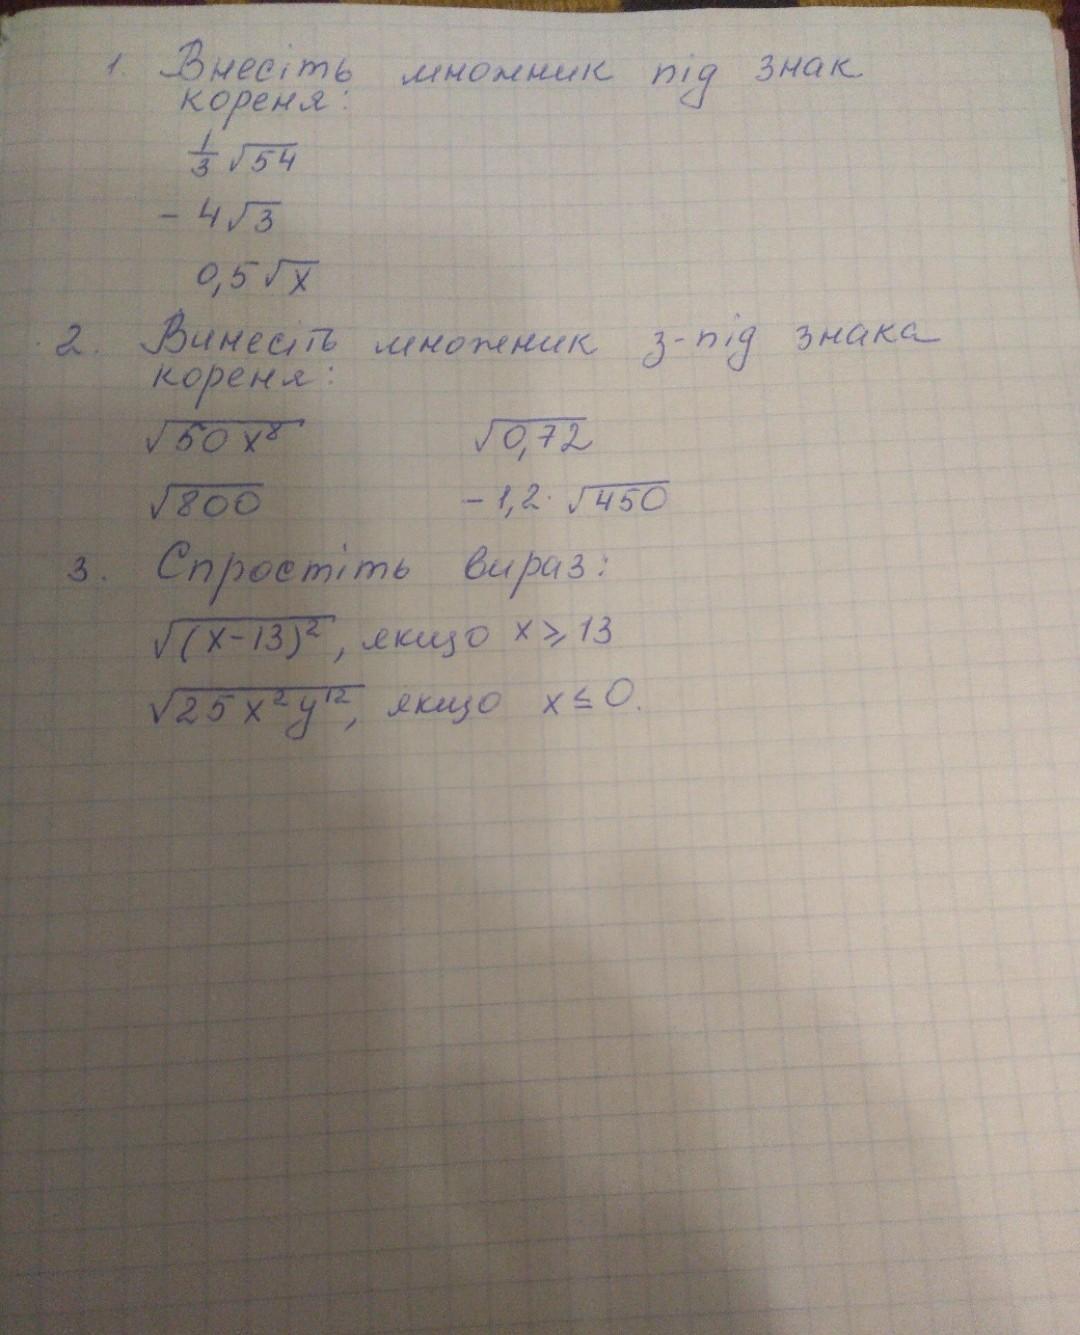 1. Внесіть множник під знак
кореня:
1/3 √54
- 4√3
0,5√x
2. Винесіть множник з-під знака
кореня:
√50x⁸ √0,72
√800 -1,2·√450
3. Спростіть вираз:
√(x-13)², якщо x ⩾ 13
√25x²y¹², якщо x ≤ 0.